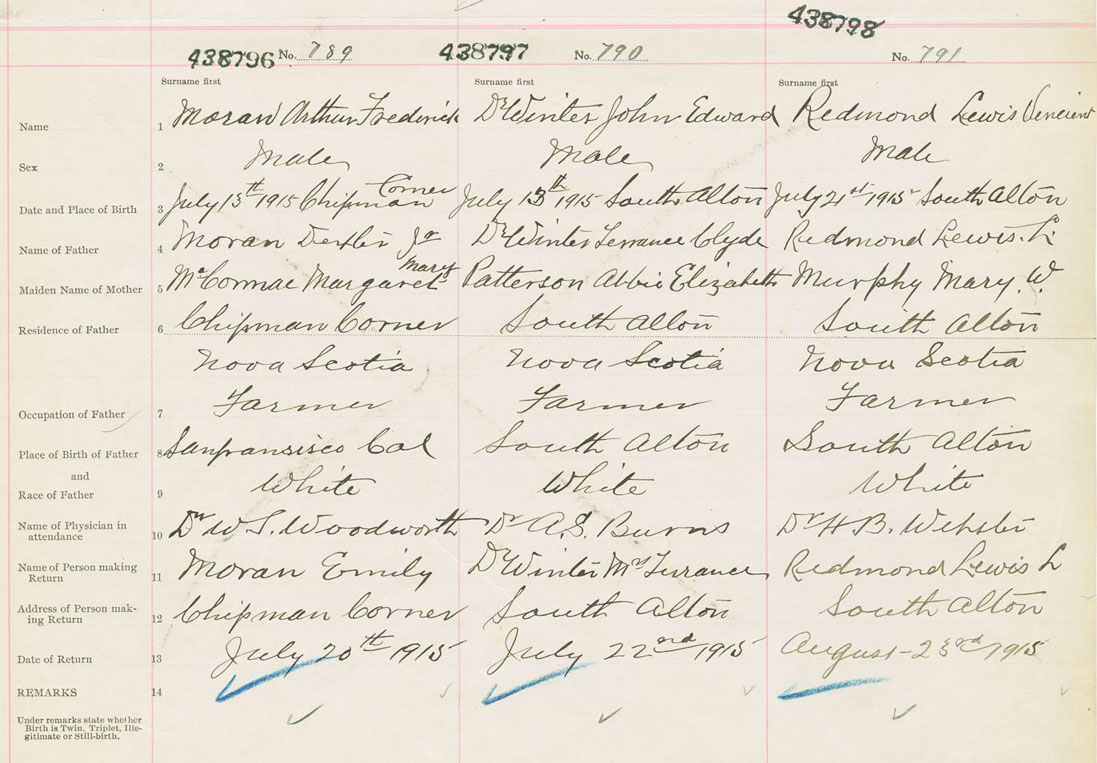 438796 No. 789 438797 No. 790 438798 No. 791
Surname first Surname first Surname first
Name 1 Moran Arthur Frederick DeWinter John Edward Redmond Lewis
Sex 2 Male Male Male
Date and Place of Birth 3 July 13th 1915 Chipman Corner July 13th 1915 South Alton July 21st 1915 South Alton
Name of Father 4 Moran Dexter Jr DeWinter Terrance Clyde Redmond Lewis. L.
Maiden Name of Mother 5 McCormac Margaret Mary Patterson Abbie Elizabeth Murphy Mary. W.
Residence of Father 6 Chipman Corner South Alton South Alton
Nova Scotia Nova Scotia Nova Scotia
Occupation of Father 7 Farmer Farmer Farmer
Place of Birth of Father 8 Sanfransisco Cal South Alton South Alton
and
Race of Father 9 White White White
Name of Physician in
attendance 10 Dr W. S. Woodworth Dr A. S. Burns Dr H. B. Webster
Name of Person making
Return 11 Moran Emily DeWinter Mrs Terrance Redmond Lewis L
Address of Person mak-
ing Return 12 Chipman Corner South Alton South Alton
Date of Return 13 July 20th 1915 July 22nd 1915 August 23rd 1915
REMARKS 14
Under remarks state whether
Birth is Twin, Triplet, Ille-
gitimate or Still-birth.